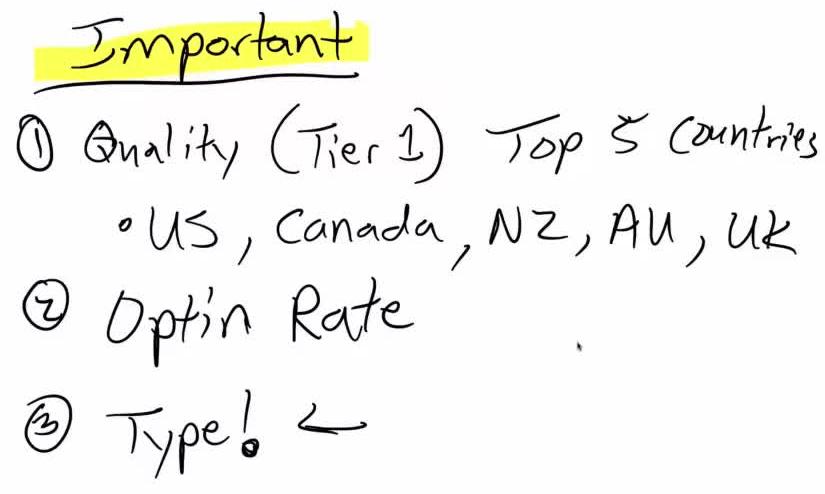 Important
① Quality (Tier 1) Top 5 Countries
• US, Canada, NZ, AU, UK
② Optin Rate
③ Type! ←